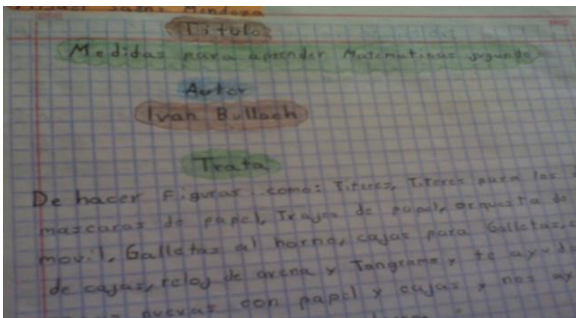 Mendoza
Titulo
Medidas para aprender Matematicas jugando
Autor
Ivan Bulloch
Trata
De hacer Figuras como: Titeres, Titeres para los
mascaras de papel, Trajes de papel, orquesta de
movil, Galletas al horno, cajas para Galletas,
de cajas, reloj de arena y Tangrama y te ayuda
nuevas con papel y cajas y nos ay